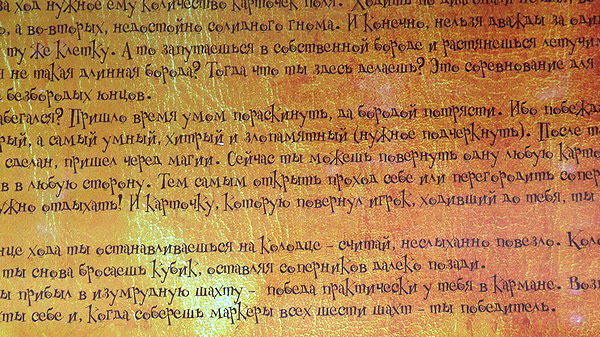 за ход нужное ему количество карточек поля. Ходить по диагонали нельзя, во
о, а во-вторых, недостойно солидного гнома. И конечно, нельзя дважды за оди
ту же клетку. А то запутаешься в собственной бороде и растянешься летучим
я не такая длинная борода? Тогда что ты здесь делаешь? Это соревнование для
безбородых юнцов.
абегался? Пришло время умом пораскинуть, да бородой потрясти. Ибо побежда
рый, а самый умный, хитрый и злопамятный (нужное подчеркнуть). После т
сделан, пришел черед магии. Сейчас ты можешь повернуть одну любую карто
в в любую сторону. Тем самым открыть проход себе или перегородить сопер
ужно отдыхать! И карточку, которую повернул игрок, ходивший до тебя, ты
нце хода ты останавливаешься на колодце – считай, неслыханно повезло. Коло
ты снова бросаешь кубик, оставляя соперников далеко позади.
ы прибыл в изумрудную шахту – победа практически у тебя в кармане. Возь
ты себе и, когда соберешь маркеры всех шести шахт – ты победитель.